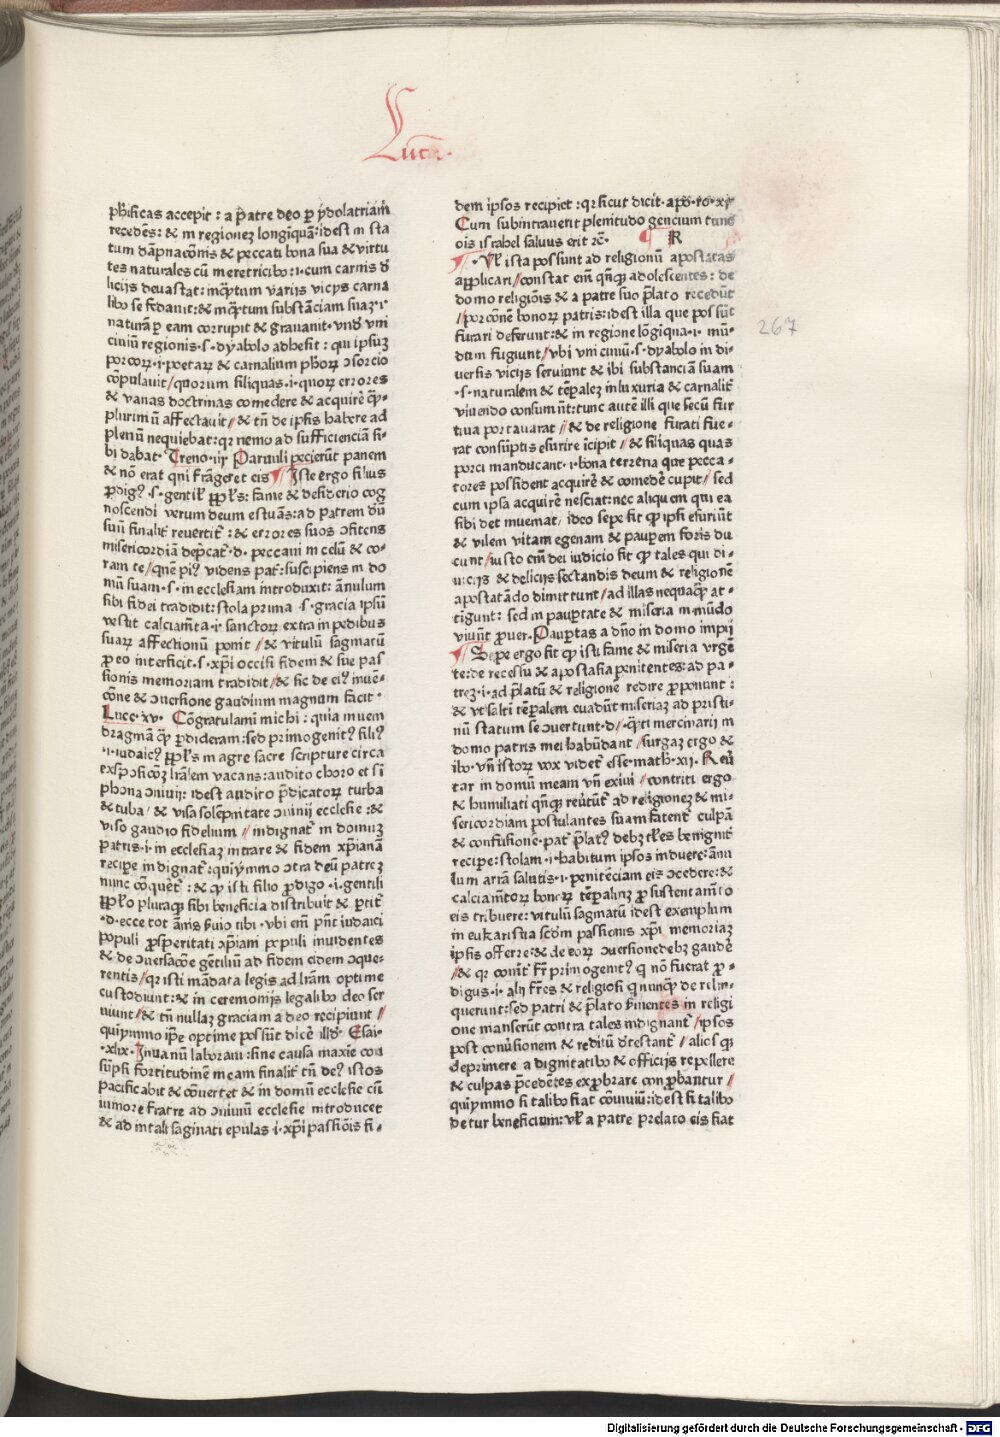 Luca.
phificas accepit : a patre deo ꝑ ydolatriam
recedēs: & in regionez longīquā: idest in sta
tum dāpnacōnis & peccati bona sua & virtu
tes naturales cū meretricibo: ·i· cum carnis dē
licijs deuastat: inq̄ptum varijs vicijs carna
libo se fedauit: & inq̄ptum substāciam suaz ·i·
naturā ꝑ eam corrupit & grauauit · vnd vni
ciuiū regionis ·s· dyabolo adhesit : qui ipsuz
porcorꝝ ·i· poetarꝝ & carnalium phorꝝ ↄsorcio
cōpulauit / quorum siliquas ·i· quorꝝ errores
& vanas doctrinas comedere & acquirē q̄ꝫ
plurimū affectauit // & tn̄ de ipsis habere ad
plenū nequiebat: qꝛ nemo ad sufficienciā si-
bi dabat · Treno · iiij Paruuli pecierūt panem
& nō erat qui frāgeret eis ¶ Iste ergo filius
ꝓdigꝰ ·s· gentilꝭ ppl's: fame & desiderio cog
noscendi verum deum estuās: ad patrem dn̄
suū finalit revertit : & errores suos ↄfitens
misericordiā dep̄cat ·d· peccaui in celū & co-
ram te / quē piꝰ videns pat: suscipiens in do
mū suam ·s· in ecclesiam introduxit: ānulum
sibi fidei tradidit: stola prima ·s· gracia ipsū
vestit calciamēta ·i· sanctorꝝ extra in pedibus
suarꝝ affectionū ponit // & vitulū saginatū
ꝓ eo interficit ·s· xp̄i occisi fidem & sue pas
sionis memoriam tradidit / & sic de eiꝰ inuē-
cōne & ↄuersione gaudium magnum facit ·
Luce · xv · Cōgratulamī michi : quia inueni
dragmā qꝫ perdideram: sed primogenitꝰ filiꝰ
·i· iudaicꝰ ppl's in agre sacre scripture circa
exspoficōꝫ līralem vacans: audito choro et si
phona ↄuiuij: idest audito p̄dicatorꝝ turba
& tuba / & visa solēpnitate ↄuiuij ecclesie : &
viso gaudio fidelium // indignat in domuz
patris ·i· in ecclesiaz intrare & fidem xp̄ianā
recipe indignat: quiymmo ↄtra deū patrez
nunc cōquēt : & qꝫ isti filio ꝓdigo ·i· gentili
pplo pluraqꝫ sibi beneficia distribuit & ꝑtit
·d· ecce tot ānis seruio tibi · vbi em̄ pn̄t iudaici
populi ꝓsperitati xp̄iani populi inuidentes
& de ↄuersacōe gētiliū ad fidem eidem ↄque-
rentis / qꝛ isti mādata legis ad līram optime
custodiunt: & in ceremonijs legalibo deo ser
uiunt // & tn̄ nullaz graciam a deo recipiunt //
quiymmo ipē optime possūt dicē illd · Esai·
·xlix· Inuanū laboraui: sine causa maxie con
sūpsi fortitudinē meam finalit tn̄ deꝰ istos
pacificabit & cōuertet & in domū ecclesie cū
iuniore fratre ad ↄuiuiū ecclesie introducet
& ad intali saginati epulas ·i· xp̄i passiōis fi-
dem ipsos recipiet : qꝛ sicut dicit · apo · ro · xj·
Cum subintrauerit plenitudo gencium tunc
ois israhel saluus erit zc̄· ¶ R
¶ · Vl' ista possunt ad religionū apostatas
applicari / constat em̄ qn̄qꝫ adolescentes : de
domo religiōis & a patre suo p̄lato recedūt
// porcōnē bonorꝝ patris: idest illa que possūt
furari deferunt: & in regione lōgiqua ·i· mū-
dum fugiunt / vbi vni ciuiū ·s· dyabolo in di-
uersis vicijs seruiunt & ibi substanciā suam
·s· naturalem & tēpalez in luxuria & carnalit
viuendo consumūt: tunc autē illi que secū fur
tiua portauarāt // & de religione furati fue-
rāt consūptis esurire īcipit // & siliquas quas
porci manducant ·i· bona terrena que pecca-
tores possident acquirē & comedē cupit // sed
cum ipsa acquirē nesciat: nec aliquem qui ea
sibi det inueniat, ideo sepe fit qꝫ ipsi esuriūt
& vilem vitam egenam & pauꝑem foris du
cunt / iusto em̄ dei iudicio fit qꝫ tales qui di-
uicijs & delicijs sectandis deum & religionē
apostatādo dimittunt / ad illas nequaqꝫ at-
tigunt : sed in pauꝑtate & miseria in mūdo
viuūt ꝓuer. Pauꝑtas a dn̄o in domo impij
¶ Sepe ergo fit qꝫ isti fame & miseria vrgē
te: de recessu & apostasia penitentes: ad pa-
trez ·i· ad p̄latū & religione redire ꝓponunt :
& vt saltī tēꝑalem euadūt miseriaz ad pristi-
nū statum se ↄuertunt ·d· / qn̄ti mercinarij in
domo patris mei habūdant / surgaz ergo &
ibo · vn̄ istorꝝ vox videt esse · math · xij · Reu̅
tar in domū meam vn̄ exiui / contriti ergo
& humiliati qn̄qꝫ reūtūt ad religionez & mi-
sericordiam postulantes suam fatent culpā
& confusionē · pat p̄latꝰ debꝫ tl'es benignit
recipe: stolam ·i· habitum ipsos induere: ānu
lum arrā salutis ·i· penitēciam eis ↄcedere: &
calciamētorꝝ bonorꝝ tēꝑaliuꝫ ꝓ sustentamēto
eis tribuere: vitulū saginatū idest exemplum
in eukaristia scdm passionis xp̄i memoriaz
ipsis offerre: & de eorꝝ ↄuersione debꝫ gaudē
// & qꝛ conūt fr̄ primogenitꝰ q nō fuerat ꝓ-
digus ·i· alij fr̄es & religiosi q nunqꝫ de relin-
querunt: sed patri & p̄lato ꝑmanentes in religi
one manserūt contra tales indignant / ipsos
post conūsionem & reditū detestant // alios qꝫ
deprimere a dignitatibo & officijs repellere
& culpas p̄cedētes exprobrare conprobantur //
quiymmo si talibo fiat cōuiuiū: idest si talibo
detur beneficium: vl' a patre prelato eis fiat
267
Digitalisierung gefördert durch die Deutsche Forschungsgemeinschaft - DFG